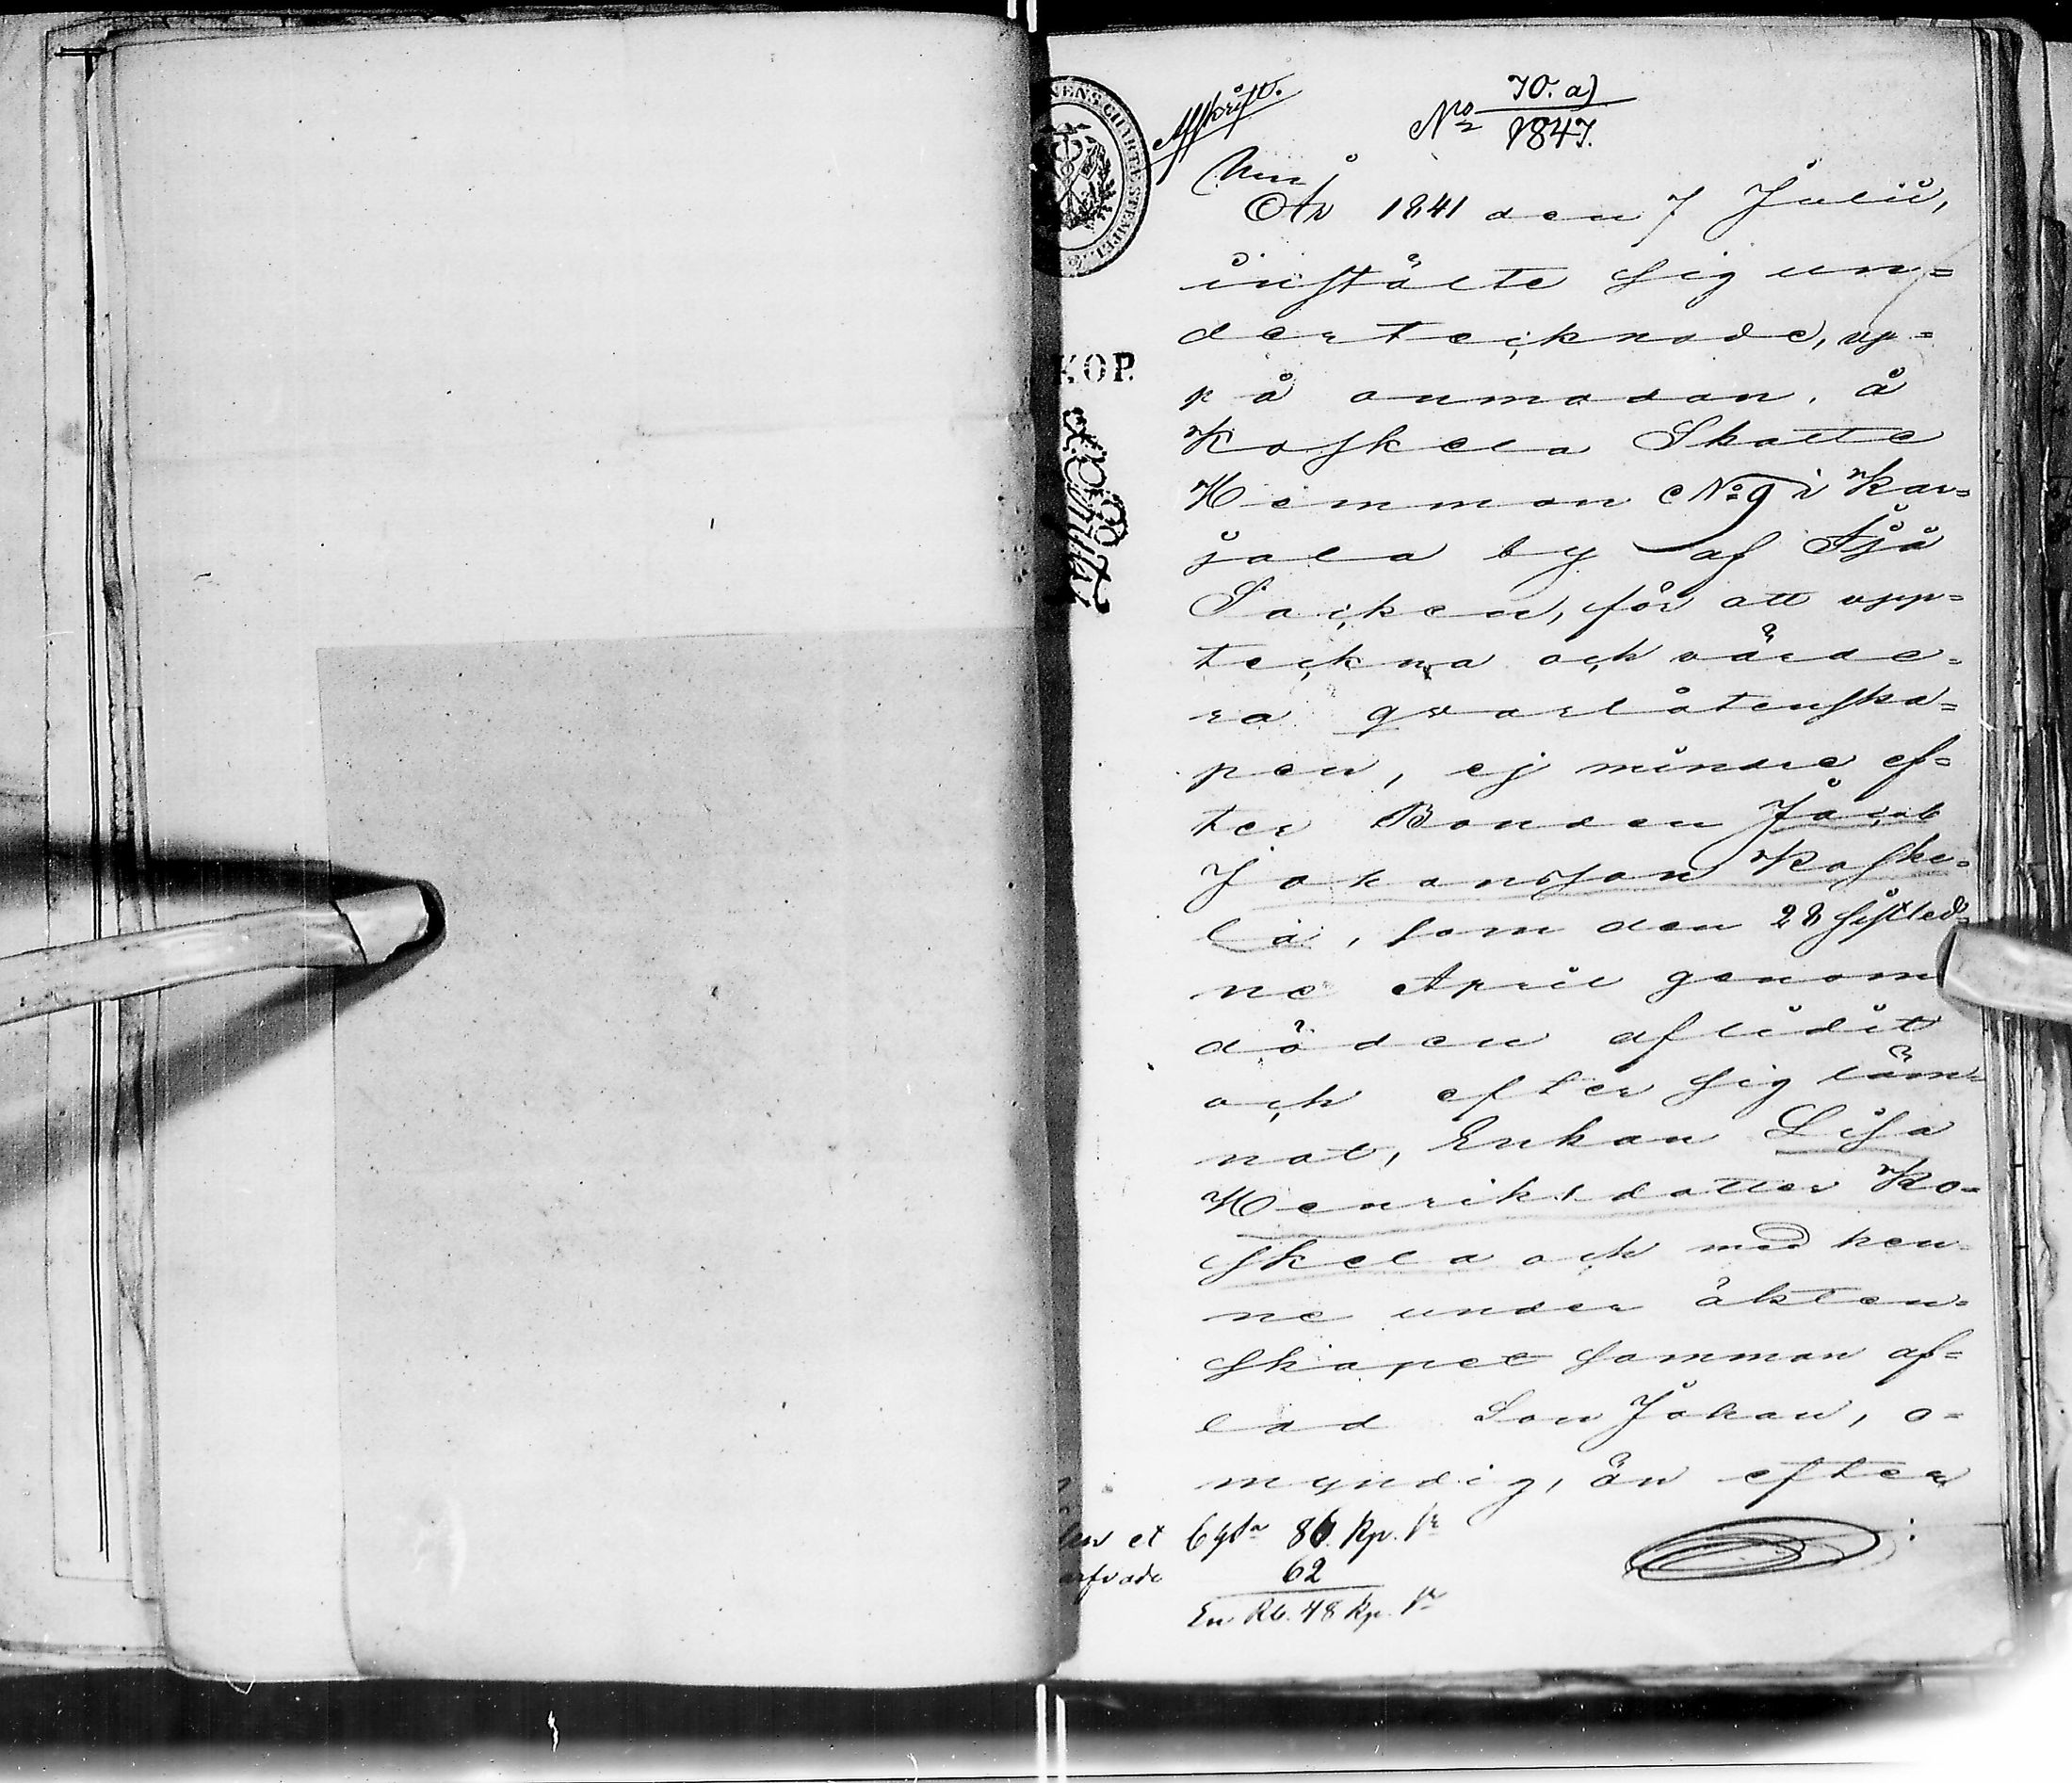 Afskrift.
No 70. a)
1847.
År 1841 den 7 Julii,
instälte sig un=
dertecknade, up=
på anmodan, å
Koskela Skatte
Hemman No 9 i Kar=
jala by af
Socken, för att upp=
teckna och värde=
ra qvarlåtenska=
pen, ej mindre ef=
ter Bonden Jacob
Johansson Koske=
la, som den 28 sistled=
ne April genom
döden aflidit
och efter sig läm=
nat, Enkan Lisa
Henriksdotter Ko=
skela och med hen=
ne under äkten=
skapet samman af=
lad Son Johan, o=
myndig, än efter
KOP.
62
En Rb. 48 Kp. Sr